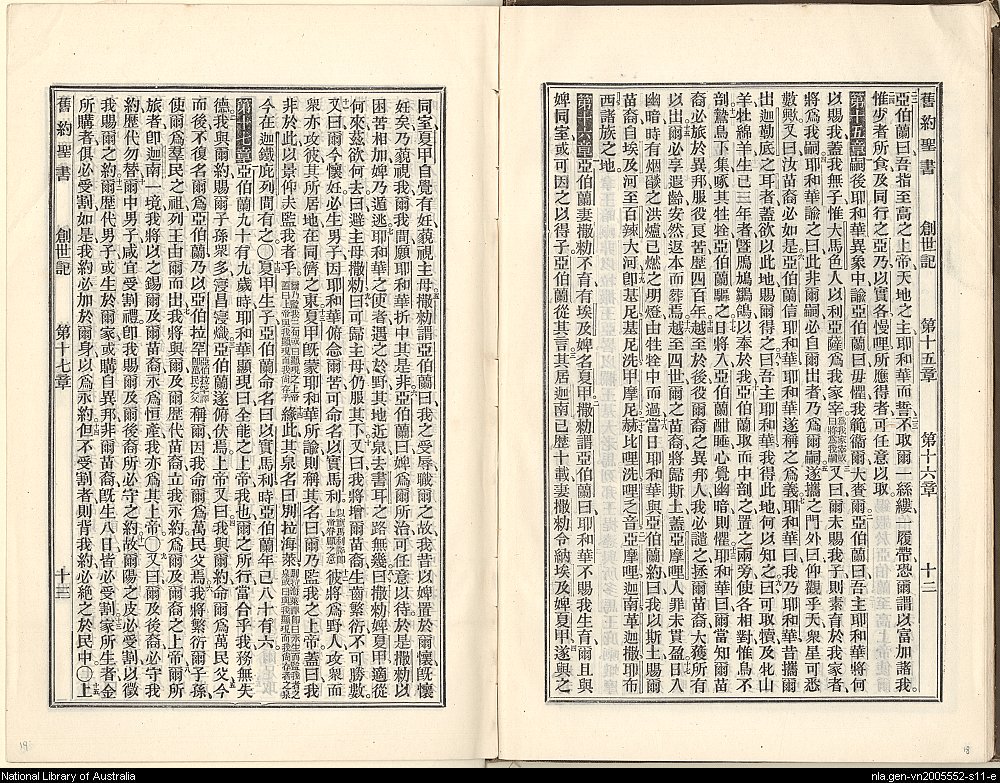 舊約聖書 創世記 第十五章 第十六章 十二
亞伯蘭曰吾指至高之上帝天地之主耶和華而誓不取爾一絲縷一履帶恐爾謂以富加諸我
惟少者所食及同行之亞乃以實各慢哩所應得者可任意以取
第十五章嗣後耶和華異象中諭亞伯蘭曰毋懼我範衞爾大賚爾亞伯蘭曰吾主耶和華將何
以賜我蓋我無子惟大馬色人以利亞薩爲我家宰又曰爾未賜我子則素育於我家者
將爲我嗣耶和華諭之曰此非爾嗣必自爾出者乃爲爾嗣遂攜之門外曰仰觀乎天衆星可悉
數歟又曰汝苗裔必如是亞伯蘭信耶和華耶和華遂稱之爲義耶和華曰我乃耶和華昔攜爾
出迦勒底之耳者蓋欲以此地賜爾得之曰吾主耶和華我得此地何以知之曰可取犢及牝山
羊牡綿羊生已三年者暨鳲鳩鶵鴿以奉於我亞伯蘭取而中剖之置之兩旁使各相對惟鳥不
剖鷙鳥下集啄其牲亞伯蘭驅之日將入亞伯蘭酣睡心覺幽暗則懼耶和華曰爾當知爾苗
裔必旅於異邦服役苦歷四百年越至於後役爾裔之異邦人我必譴之拯爾苗裔大獲所有
以出爾必享遐齡安然返本而葬焉越至四世爾之苗裔將歸斯土蓋亞摩哩人罪未貫盈日入
幽暗時有烟燄之洪爐已燃之明燈由牲中而過當日耶和華與亞伯蘭約曰我以斯土賜爾
苗裔自埃及河至百辣大河卽基尼基尼洗甲摩尼赫比哩洗哩乏音亞摩哩迦南革迦撒耶布
西諸族之地
第十六章亞伯蘭妻撒勑不育有埃及婢名夏甲撒勑謂亞伯蘭曰耶和華不賜我生育爾且與
婢同室或可因之以得子亞伯蘭從其言其居迦南已歷十載妻撒勑令納埃及婢夏甲遂與之
同室夏甲自覺有妊藐視主母撒勑謂亞伯蘭曰我之受辱職爾之故我昔以婢置於爾懷旣懷
妊矣乃藐視我爾我間願耶和華折中其是非亞伯蘭曰婢爲爾所治可任意以待於是撒勑以
困苦相加婢乃遁逃耶和華之使者遇之於野其地近泉去書耳之路無幾曰撒勑婢夏甲適從
何來茲欲何去曰避主母撒勑曰可歸主母仍服其下又曰我將增爾苗裔生齒繁衍不可勝數
又曰爾今懷妊必生男子因耶和華俯念爾苦可命名以實馬利彼將爲野人攻衆而
衆亦攻彼其所居地在同儕之東夏甲旣蒙耶和華所諭則稱其名曰爾乃監我之上帝蓋曰我
非於此以景仰夫監我者乎緣此其泉名曰別拉海萊
今在迦鐵庇列間有之〇夏甲生子亞伯蘭命名曰以實馬利時亞伯蘭年已八十有六
第十七章亞伯蘭九十有九歲時耶和華顯現曰全能之上帝我也爾之所行當合乎我務無失
德我與爾約賜爾子孫衆多寖昌寖熾亞伯蘭遂俯伏焉上帝又曰我與爾約命爾爲萬民父今
而後不復名爾爲亞伯蘭乃以亞伯拉罕稱爾因我命爾爲萬民父焉我將繁衍爾子孫
使爾爲羣民之祖列王由爾而出我將與爾及爾歷代苗裔立我永約爲爾及爾裔之上帝爾所
旅者卽迦南一境我將以之錫爾及爾苗裔永爲恒產我亦爲其上帝〇又曰爾及後裔必守我
約歷代勿替爾中男子咸宜受割禮卽我賜爾及爾後裔所必守之約故爾陽之皮必受割以徵
我賜爾之約爾歷代男子或生於爾家或購自異邦非爾苗裔旣生八日者必受割家所生者金
所購者俱必受割如是我約必加於爾身以爲永約但不受割者則背我約必絶之於民中〇上
舊約聖書 創世記 第十七章 十三
19
18
National Library of Australia
nla.gen-vn2005552-s11-e